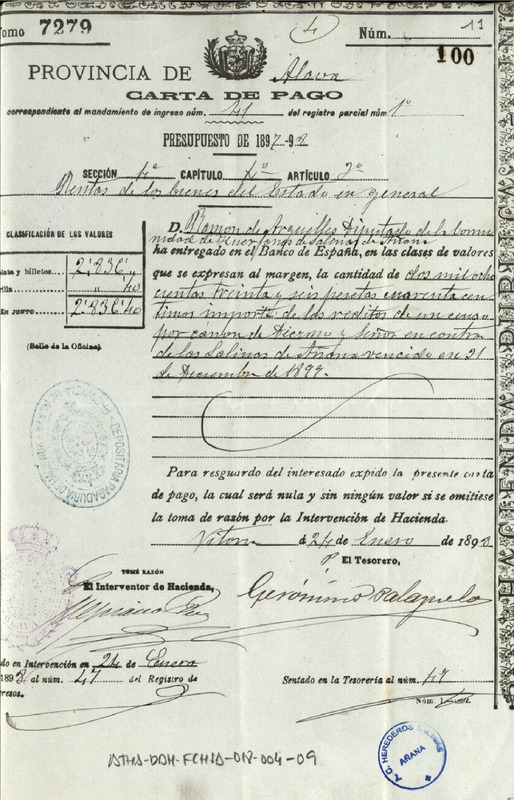 Tomo 7279
4
Núm. 11
100
PROVINCIA DE Alava
CARTA DE PAGO
correspondiente al mandamiento de ingreso núm. 41 del registro parcial núm. 1º
PRESUPUESTO DE 1897-98
SECCIÓN 4ª CAPÍTULO 4º ARTÍCULO 2º
Rentas de los bienes del Estado en general
CLASIFICACIÓN DE LOS VALORES
Plata y billetes 2'836 "
Calderilla " 40
EN JUNTO 2'836'40
(Sello de la Oficina)
D. Ramon de Arguelles Diputado de la Comu
nidad de Caballeros herederos de Salinas de Añana
ha entregado en el Banco de España, en las clases de valores
que se expresan al margen, la cantidad de dos mil ocho
cientas treinta y seis pesetas cuarenta cen
timos importe de los reditos de un censo
por cánon de Diezmo y Señor en contra
de las Salinas de Añana vencido en 31
de Diciembre de 1897.
DEPOSITARIA PAGADURIA DE HACIENDA
Para resguardo del interesado expido la presente carta
de pago, la cual será nula y sin ningún valor si se omitiese
la toma de razón por la Intervención de Hacienda.
Vitoria á 24 de Enero de 1898
P. El Tesorero,
TOMÉ RAZÓN
El Interventor de Hacienda,
Gerónimo Palazuelo
Sentado en Intervención en 24 de Enero
de 1898 al núm. 47 del Registro de
Ingresos.
Sentado en la Tesorería al núm. 47
ATHA-DAH-FCHSA-018-004-09
HEREDEROS SALINAS
AÑANA